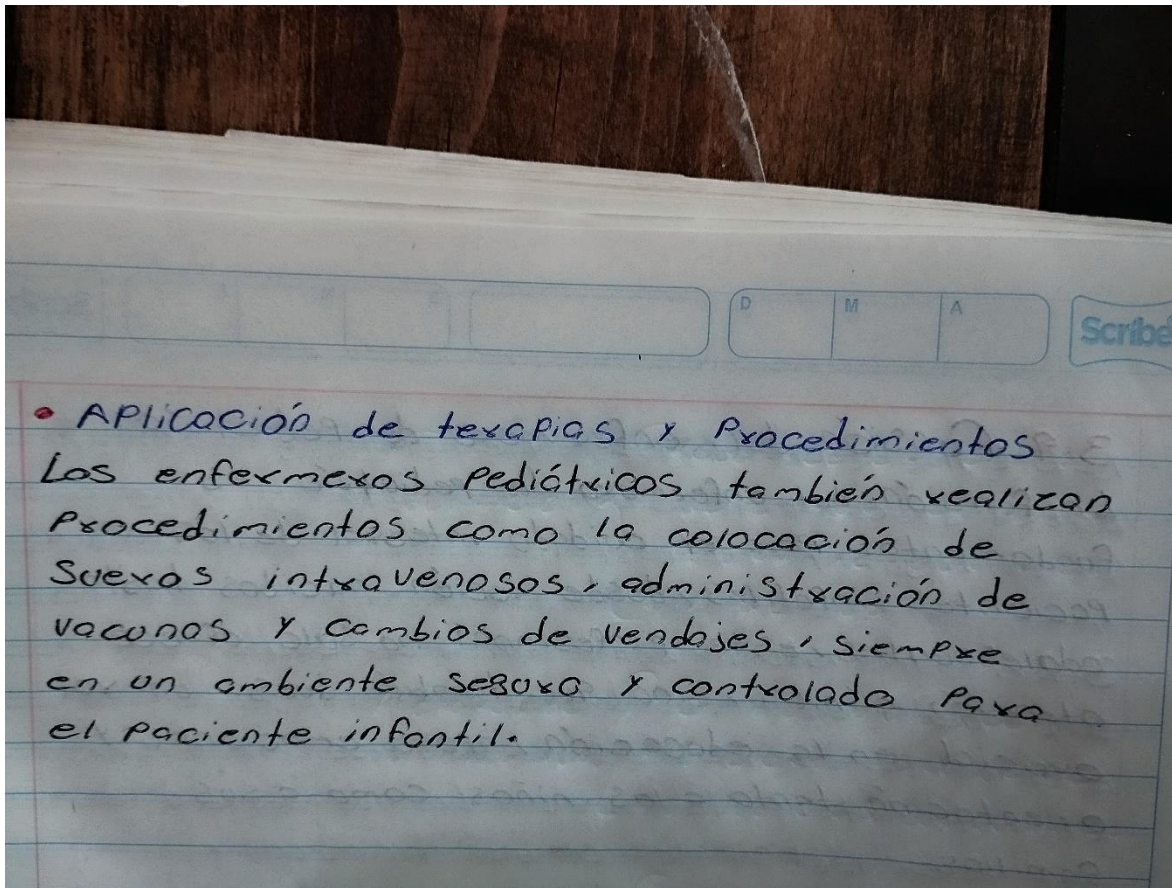 D M A
Scribe
• Aplicación de terapias y Procedimientos
Los enfermeros Pediátricos también realizan
Procedimientos como la colocación de
Sueros intravenosos, administración de
vacunas y cambios de vendajes, siempre
en un ambiente seguro y controlado Para
el Paciente infantil.